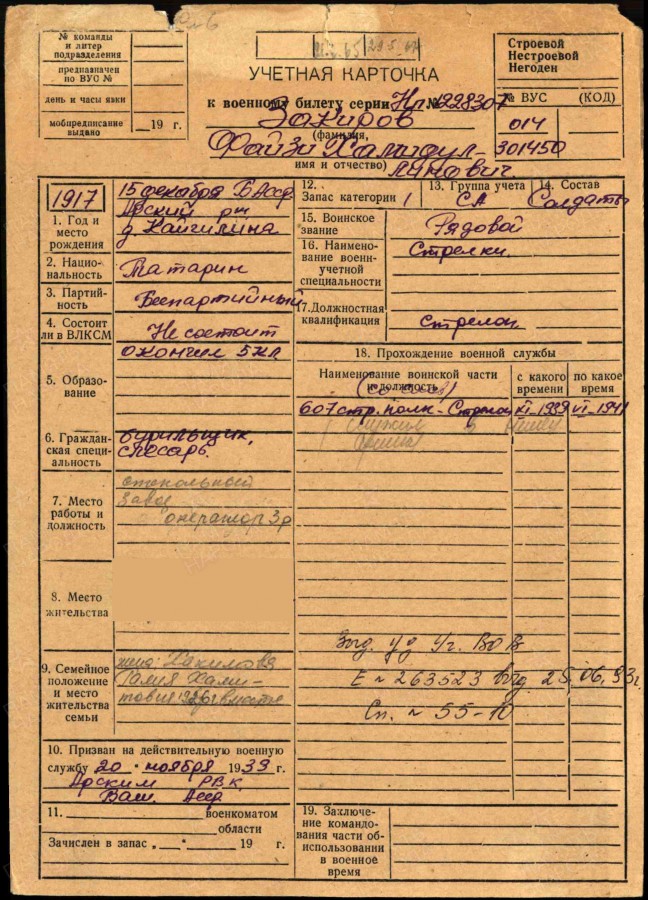 № команды
и литер
подразделения
предназначен
по ВУС №
день и часы явки
мобпредписание
выдано
19 г.
УЧЕТНАЯ КАРТОЧКА
к военному билету серии Нп № 228307
Закиров
(фамилия,
Файзи Хамидул-
имя и отчество)
линович.
Строевой
Нестроевой
Негоден
№ ВУС (КОД)
014
301450
1917
1. Год и
место
рождения
15 декабря БАССР
Арский р-н
д.
2. Нацио-
нальность
Татарин
3. Партий-
ность
Беспартийный
4. Состоит
ли в ВЛКСМ
Не состоит
5. Образо-
вание
окончил 5 кл
6. Граждан-
ская специ-
альность
бурильщик,
слесарь.
7. Место
работы и
должность
стекольный
завод
оператор 3р
8. Место
жительства
9. Семейное
положение
и место
жительства
семьи
жена: Хакимова
Галия Хами-
товна 1926г вместе
10. Призван на действительную военную
службу 20 ноября 1939 г.
Арским РВК
Баш. АССР
11. военкоматом
области
Зачислен в запас 19 г.
12.
Запас категории 1
13. Группа учета
СА
14. Состав
Солдаты
15. Воинское
звание
Рядовой
16. Наимено-
вание военн-
учетной
специальности
Стрелки.
17. Должностная
квалификация
Стрелок
18. Прохождение военной службы
Наименование воинской части
и должность
с какого
времени
по какое
время
607 стр. полк - Стрелок XI-1939 VI-1941
служил в
Выд. уд Уч. ВОВ
Е № 263523 выд. 25.06.93г.
Сп. № 55-10
19. Заключе-
ние командо-
вания части об ис-
пользовании
в военное
время